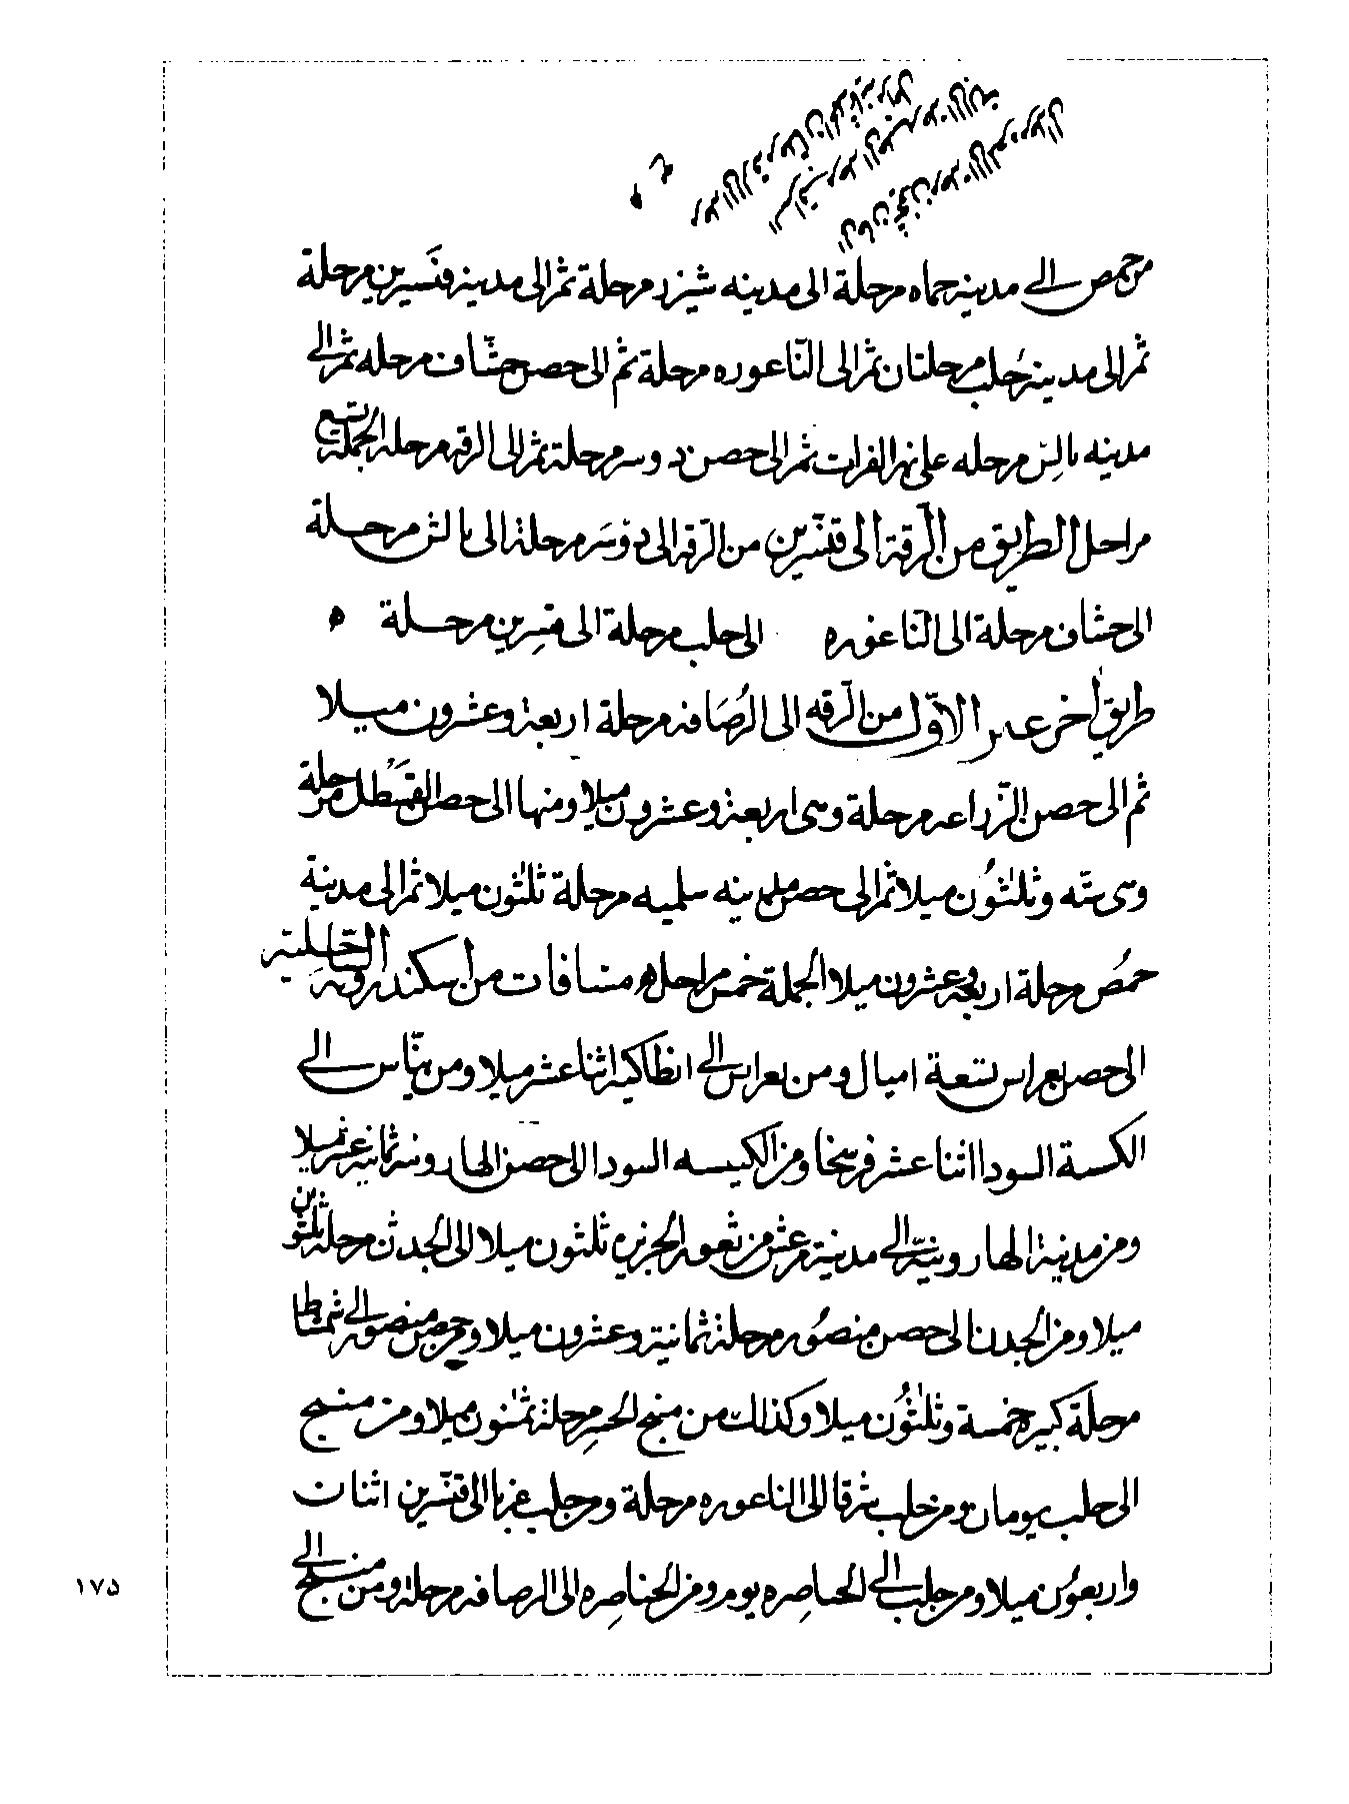 من حمص الى مدينة حماه مرحلة الى مدينه شيزر مرحلة ثم الى مدينة قنسرين مرحلة
ثم الى مدينة حلب مرحلتان ثم الى الناعوره مرحلة ثم الى حصن خشاف مرحله ثم الى
مدينه بالس مرحله على نهر الفرات ثم الى حصن دوسر مرحلة ثم الى الرقه مرحله الجملة تسع
مراحل الطريق من الرقة الى قنسرين من الرقه الى دوسر مرحلة الى بالس مرحلة
الى خشاف مرحلة الى الناعوره الى حلب مرحلة الى قنسرين مرحلة ه
طريق أخر غير الاول من الرقه الى الرصافه مرحلة اربعة وعشرون ميلا
ثم الى حصن الزراعه مرحلة وهى اربعة وعشرون ميلا ومنها الى حصن القسطل مرحلة
وهى سته وثلثون ميلا ثم الى حصن مدينه سلميه مرحلة ثلثون ميلا ثم الى مدينة
حمص مرحلة اربعة وعشرون ميلا الجملة خمس مراحل ه مسافات من اسكندرونه الساحلية
الى حصن بغراس تسعة اميال ومن بغراس الى انطاكية اثنا عشر ميلا ومن بياس الى
الكنسة السودا اثنا عشر فرسخا ومن الكنيسه السودا الى حصن الهارونية ثمانية عشر ميلا
ومن مدينة الهارونية الى مدينة مرعش من ثغور الجزيره ثلثون ميلا الى الحدث مرحلة ثلثون
ميلا ومن الحدث الى حصن منصور مرحلة ثمانية وعشرون ميلا ومن حصن منصور الى شمشاط
مرحلة كبيره خمسة وثلثون ميلا وكذلك من منبج الحسر مرحلة ثمنون ميلا ومن منبج
الى حلب يومان ومن حلب شرقا الى الناعوره مرحلة ومن حلب غربا الى قنسرين اثنان
واربعون ميلا ومن حلب الى الخناصره يوم ومن الخناصره الى الرصافه مرحلة ومن منبج الى
١٧٥